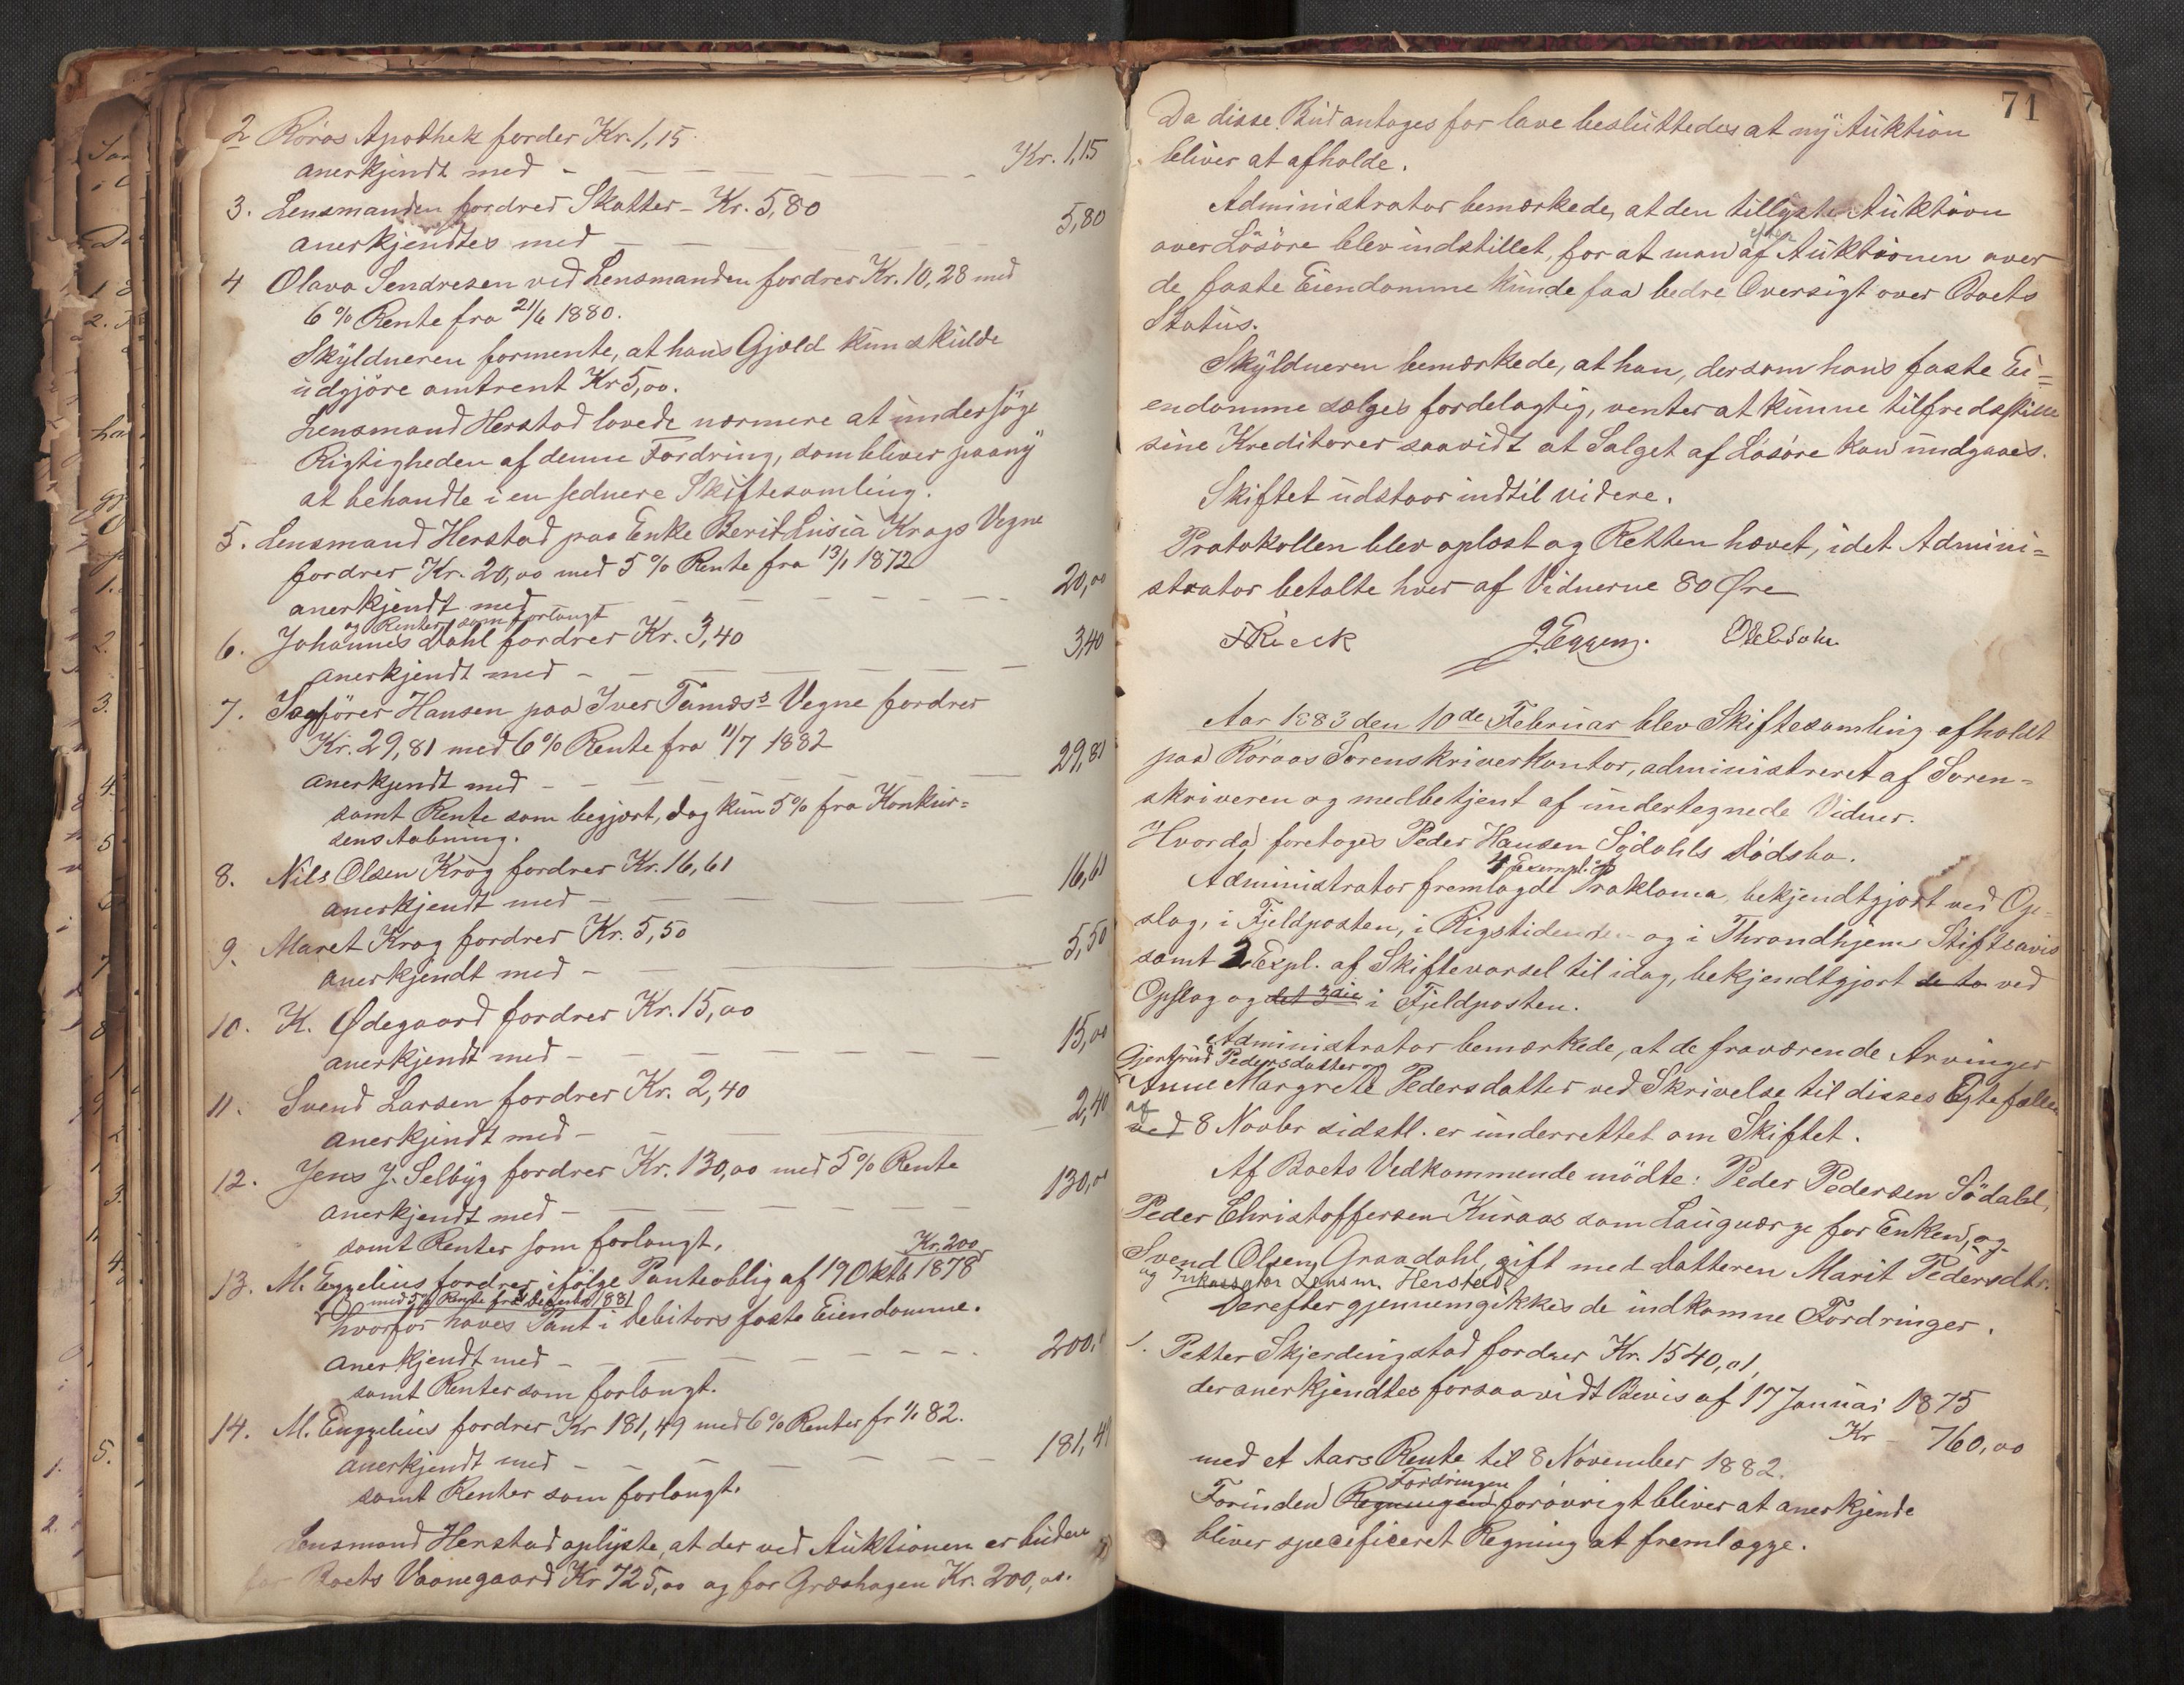 2 Röros Apothek forder Kr. 1,15.
anerkjendt med - Kr. 1,15
3. Lensmanden fordrer Skatter - Kr. 5,80
anerkjendtes med - 5,80
4 Olava Sendresen ved Lensmanden fordrer Kr. 10,28 med
6% Rente fra 21/6 1880.
Skyldneren formente, at hans Gjæld kun skulde
udgjøre omtrent Kr 5,00.
Lensmand Herstad lovede nærmere at undersöge
Rigtigheden af denne Fordring, som bliver paany
at behandle i en sednere Skiftesamling.
5. Lensmand Herstad paa Enke Berit Lusia Krags Vegne
fordrer Kr. 20,00 med 5% Rente fra 13/1 1872
anerkjendt med - 20,00
og Renter som forlangt
6. Johannes Dahl fordrer Kr. 3,40
anerkjendt med - 3,40
7. Sagförer Hansen paa Iver Tamæs's Vegne fordrer
Kr. 29,81 med 6% Rente fra 11/7 1882
anerkjendt med - 29,81
samt Rente som begjært, dog kun 5% fra Konkur=
sens Aabning.
8. Nils Olsen Krog fordrer Kr. 16,61
anerkjendt med - 16,61
9. Maret Krog fordrer Kr. 5,50
anerkjendt med - 5,50
10. K. Ødegaard fordrer Kr. 15,00
anerkjendt med - 15,00
11. Svend Larsen fordrer Kr. 2,40
anerkjendt med - 2,40
12. Jens J. Selbyg fordrer Kr. 130,00 med 5% Rente
anerkjendt med - 130,00
samt Renter som forlangt.
Kr. 200
13. M. Engzelius fordrer ifölge Panteoblig af 19 Oktb 1878
med 5% Rente fra Decemb 1881
hvorfor haves Pant i Debitors faste Eiendomme.
anerkjendt med - 200,0
samt Renter som forlangt.
14. M. Engzelius fordrer Kr 181,49 med 6% Renter fr 1/1 82.
anerkjendt med - 181,49
samt Renter som forlangt.
Lensmand Herstad oplyste, at der ved Auktionen er buden
for Boets Vaanegaard Kr 725,00 og for Græshagen Kr. 200,00.
71
Da disse Bud antoges for lave besluttedes at ny Auktion
bliver at afholde.
Administrator bemærkede, at den tillyste Auktion
over Lösöre blev indstillet, for at man efter af Auktionen over
de faste Eiendomme kunde faa bedre Oversigt over Boets
Status.
Skyldneren bemærkede, at han, dersom hans faste Ei=
endomme sælges fordelagtig, venter at kunne tilfredsstille
sine Kreditorer saavidt at Salget af Lösöre kan undgaaes.
Skiftet udstaar indtil videre.
Protokollen blev oplæst og Retten hævet, idet Admini=
strator betalte hver af Vidnerne 80 Øre
J. Eggen.
Aar 1883 den 10de Februar blev Skiftesamling afholdt
paa Röraas Sorenskriverkontor, administreret af Soren=
skriveren og medbetjent af undertegnede Vidner.
Hvorda foretoges Peder Hansen Södahls Dödsbo.
4 Exempl: af
Administrator fremlagde Proklama, bekjendtgjort ved Op=
slag, i Fjeldposten, i Rigstidenden og i Throndhjems Stiftsavis
samt 2 Expl. af Skiftevarsel til idag, bekjendtgjort de to ved
Opslag og det 3die i Fjeldposten.
Administrator bemærkede, at de fraværende Arvinger
Gjertrud Pedersdatter og
Anne Margrete Pedersdatter ved Skrivelse til disses Egtefæller
af
ved 8 Novbr sidstl. er underrettet om Skiftet.
Af Boets Vedkommende mödte: Peder Pedersen Södahl,
Peder Christoffersen Kuraas som Laugværge for Enken, og
Svend Olsen Graadahl, gift med datteren Marit Pedersdtr.
og Inkassator Lensm. Herstad.
Derefter gjennemgikkes de indkomne Fordringer.
1. Petter Skjerdingstad fordrer Kr. 1540,01,
der anerkjendtes forsaavidt Bevis af 17 Januar 1875
Kr - 760,00
med et Aars Rente til 8 November 1882.
Fordringen
Forinden Regningen forövrigt bliver at anerkjende
bliver specificeret Regning at fremlægge.